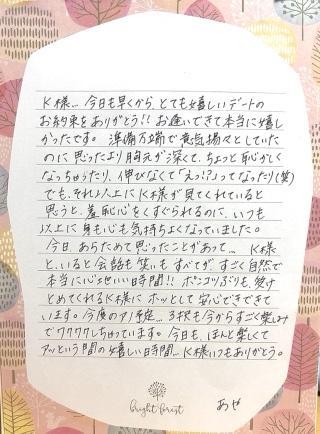 K様… 今日も早くから、とても嬉しいデートの
お約束をありがとう!! お逢いできて本当に嬉し
かったです。 準備万端で意気揚々としていた
のに思ったより胸元が深くて、ちょっと恥かしく
なっちゃったり、伸びなくて「えっ!?」ってなったり(笑)
でも、それ以上に K様が見てくれていると
思うと、羞恥心をくすぐられるのに、いつも
以上に身も心も気持ちよくなっていました。
今日、あらためて思ったことがあって… K様
と、いると会話も笑いも すべてが、すごく自然で
本当に心地いい時間!! ポンコツぶりも、受け
とめてくれるK様に ホッとして安心できできて
います。今度のアノ予定… 3択も今からすごく楽しみ
でワクワクしちゃっています。今日も、ほんと楽しくて
アッという間の嬉しい時間… K様いつもありがとう。
bright forest
あや